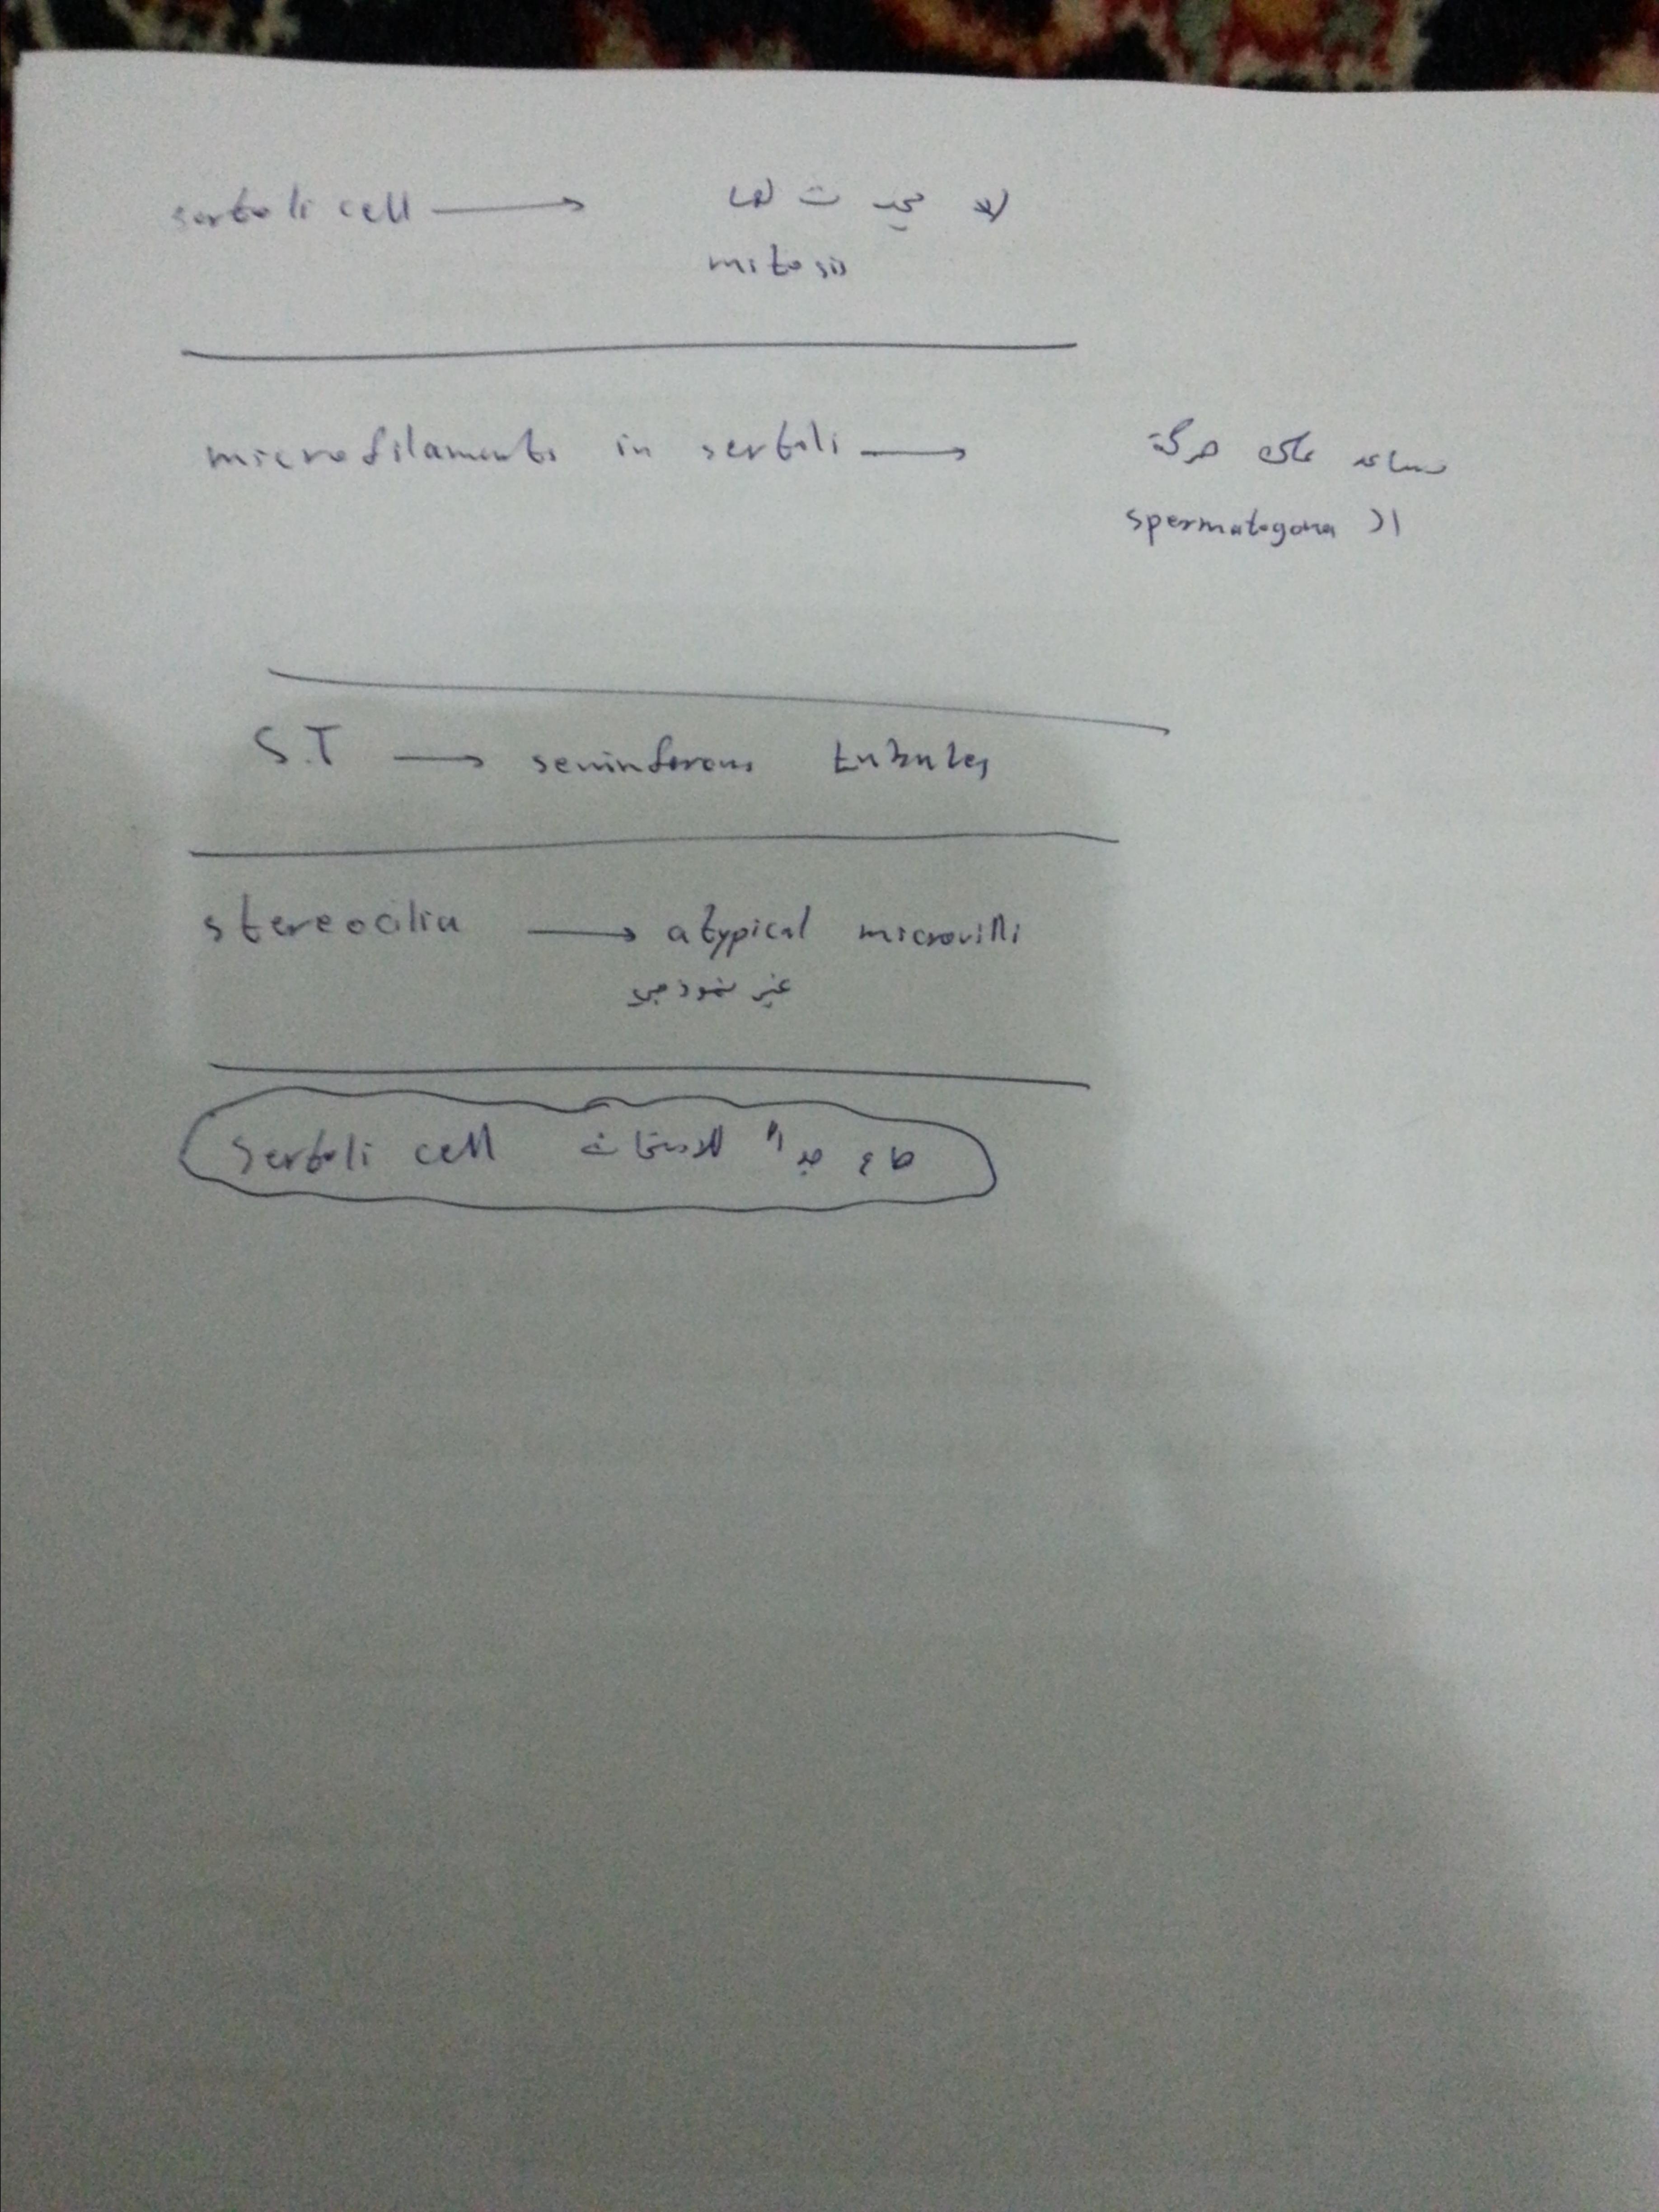 sertoli cell → لا يحدث لها
mitosis
microfilaments in sertoli → تساعد على حركة
spermatogona ال
S.T → seminferous tubules
stereocilia → atypical microvilli
غير نموذجي
Sertoli cell هام جداً للامتحان